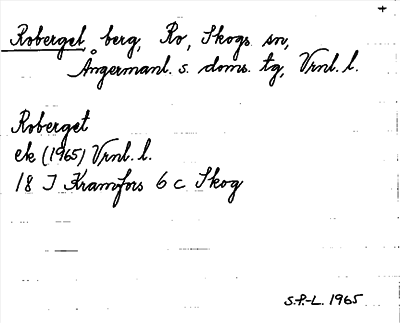 Roberget, berg, Ro, Skogs sn,
Ångermanl. s. doms. tg, Vrnl. l.
Roberget
ek (1965) Vrnl. l.
18 J Kramfors 6 c Skog
S.P.-L. 1965